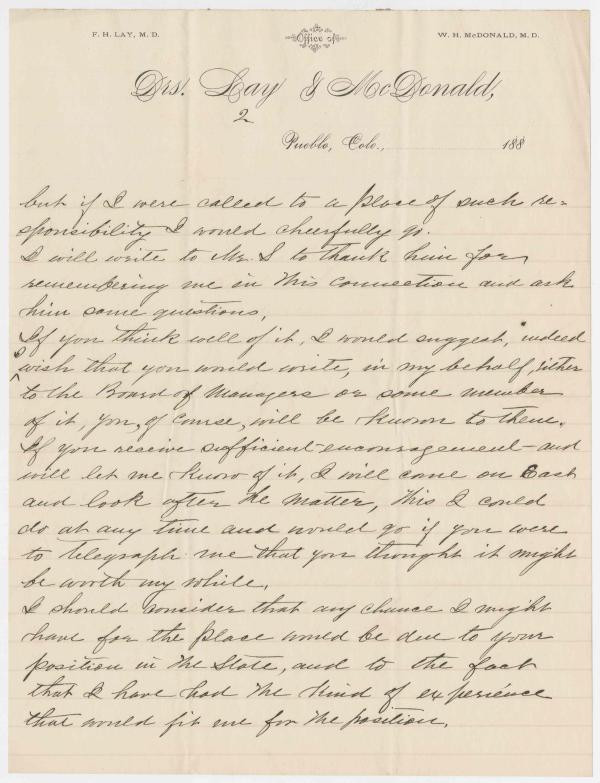 F. H. LAY, M. D.
Office of
W. H. McDONALD, M. D.
Drs. Lay & McDonald,
2
Pueblo, Colo., 188
but if I were called to a place of such re=
sponsibility I would cheerfully go.
I will write to Mr. S to thank him for
remembering me in this connection and ask
him some questions,
If you think well of it, I would suggest, indeed
I wish that you would write, in my behalf, either
to the Board of Managers or some member
of it, you, of course, will be known to them.
If you receive sufficient encouragement and
will let me know of it, I will come on East
and look after the matter, this I could
do at any time and would go if you were
to telegraph me that you thought it might
be worth my while.
I should consider that any chance I might
have for the place would be due to your
position in the State, and to the fact
that I have had the kind of experience
that would fit me for the position.